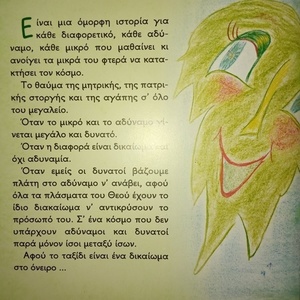 Είναι μια όμορφη ιστορία για
κάθε διαφορετικό, κάθε αδύ-
ναμο, κάθε μικρό που μαθαίνει κι
ανοίγει τα μικρά του φτερά να κατα-
κτήσει τον κόσμο.
Το θαύμα της μητρικής, της πατρι-
κής στοργής και της αγάπης σ' όλο
του μεγαλείο.
Όταν το μικρό και το αδύναμο γί-
νεται μεγάλο και δυνατό.
Όταν η διαφορά είναι δικαίωμα και
όχι αδυναμία.
Όταν εμείς οι δυνατοί βάζουμε
πλάτη στο αδύναμο ν' ανάβει, αφού
όλα τα πλάσματα του Θεού έχουν το
ίδιο δικαίωμα ν' αντικρύσουν το
πρόσωπό του. Σ' ένα κόσμο που δεν
υπάρχουν αδύναμοι και δυνατοί
παρά μόνον ίσοι μεταξύ ίσων.
Αφού το ταξίδι είναι ένα δικαίωμα
στο όνειρο ...